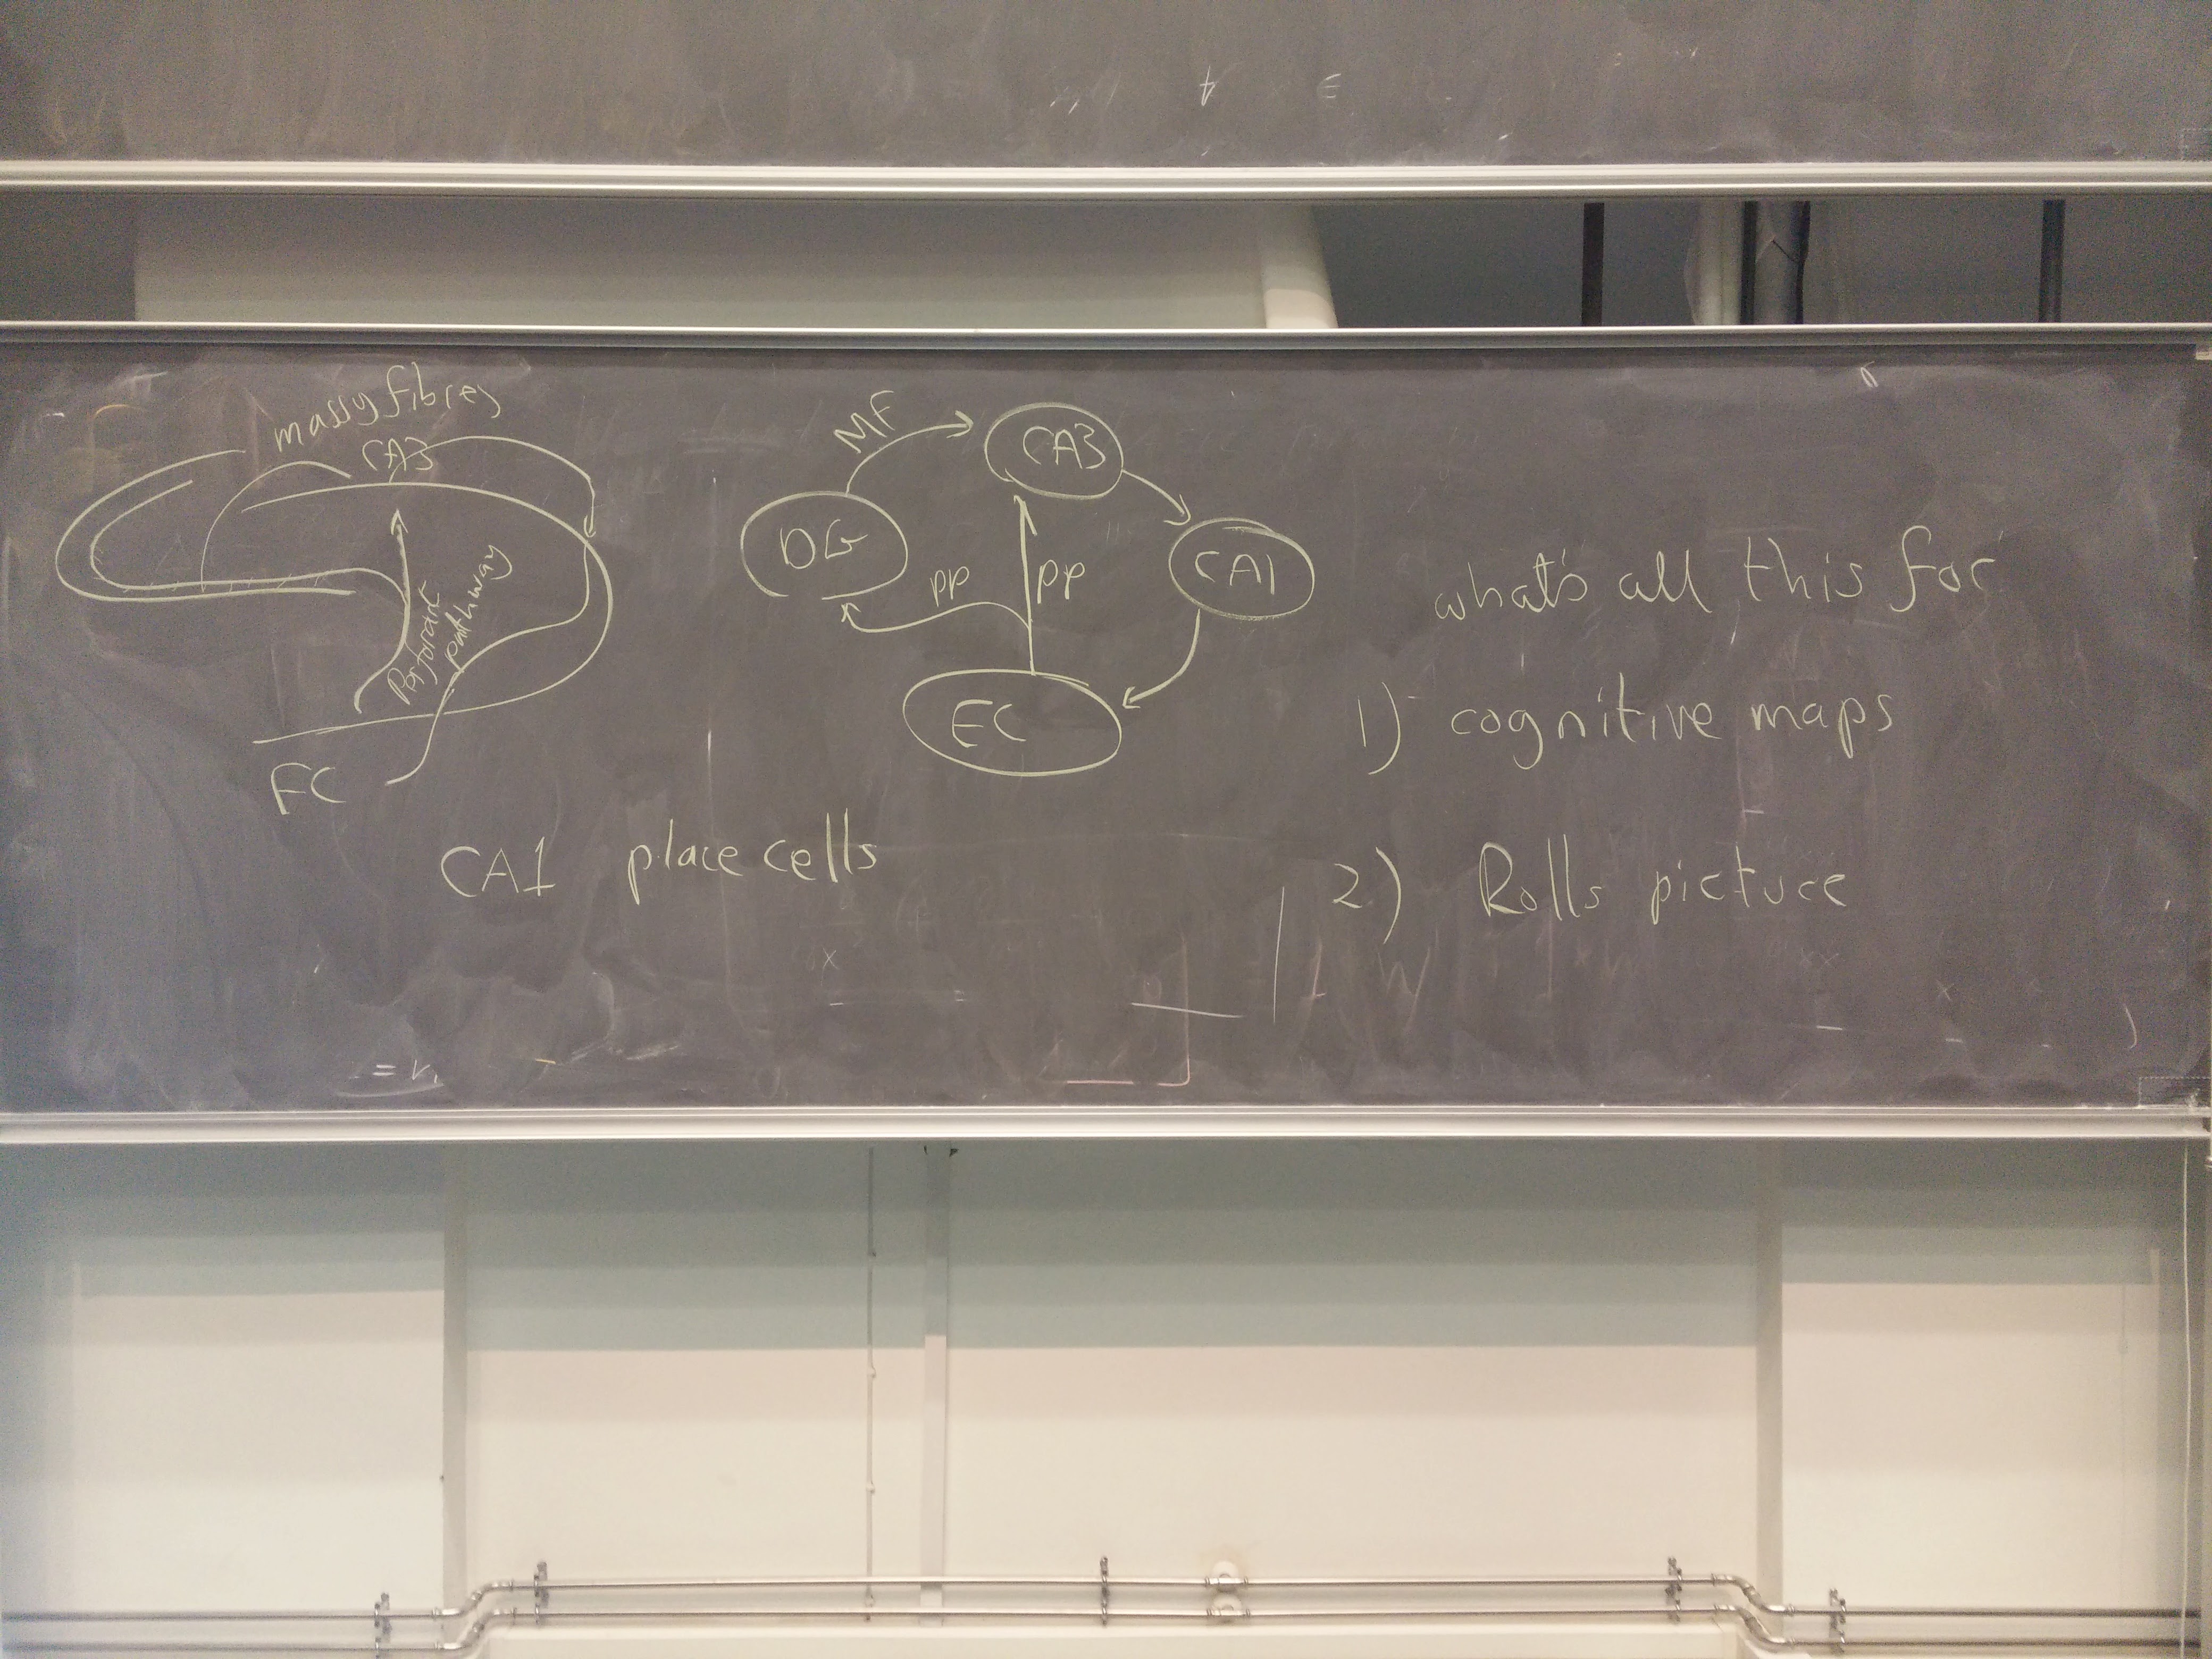 massy fibres
CA3
Perforant
pathway
EC
MF
CA3
DG
CA1
pp
pp
EC
CA1 place cells
what's all this for
1) cognitive maps
2) Rolls picture